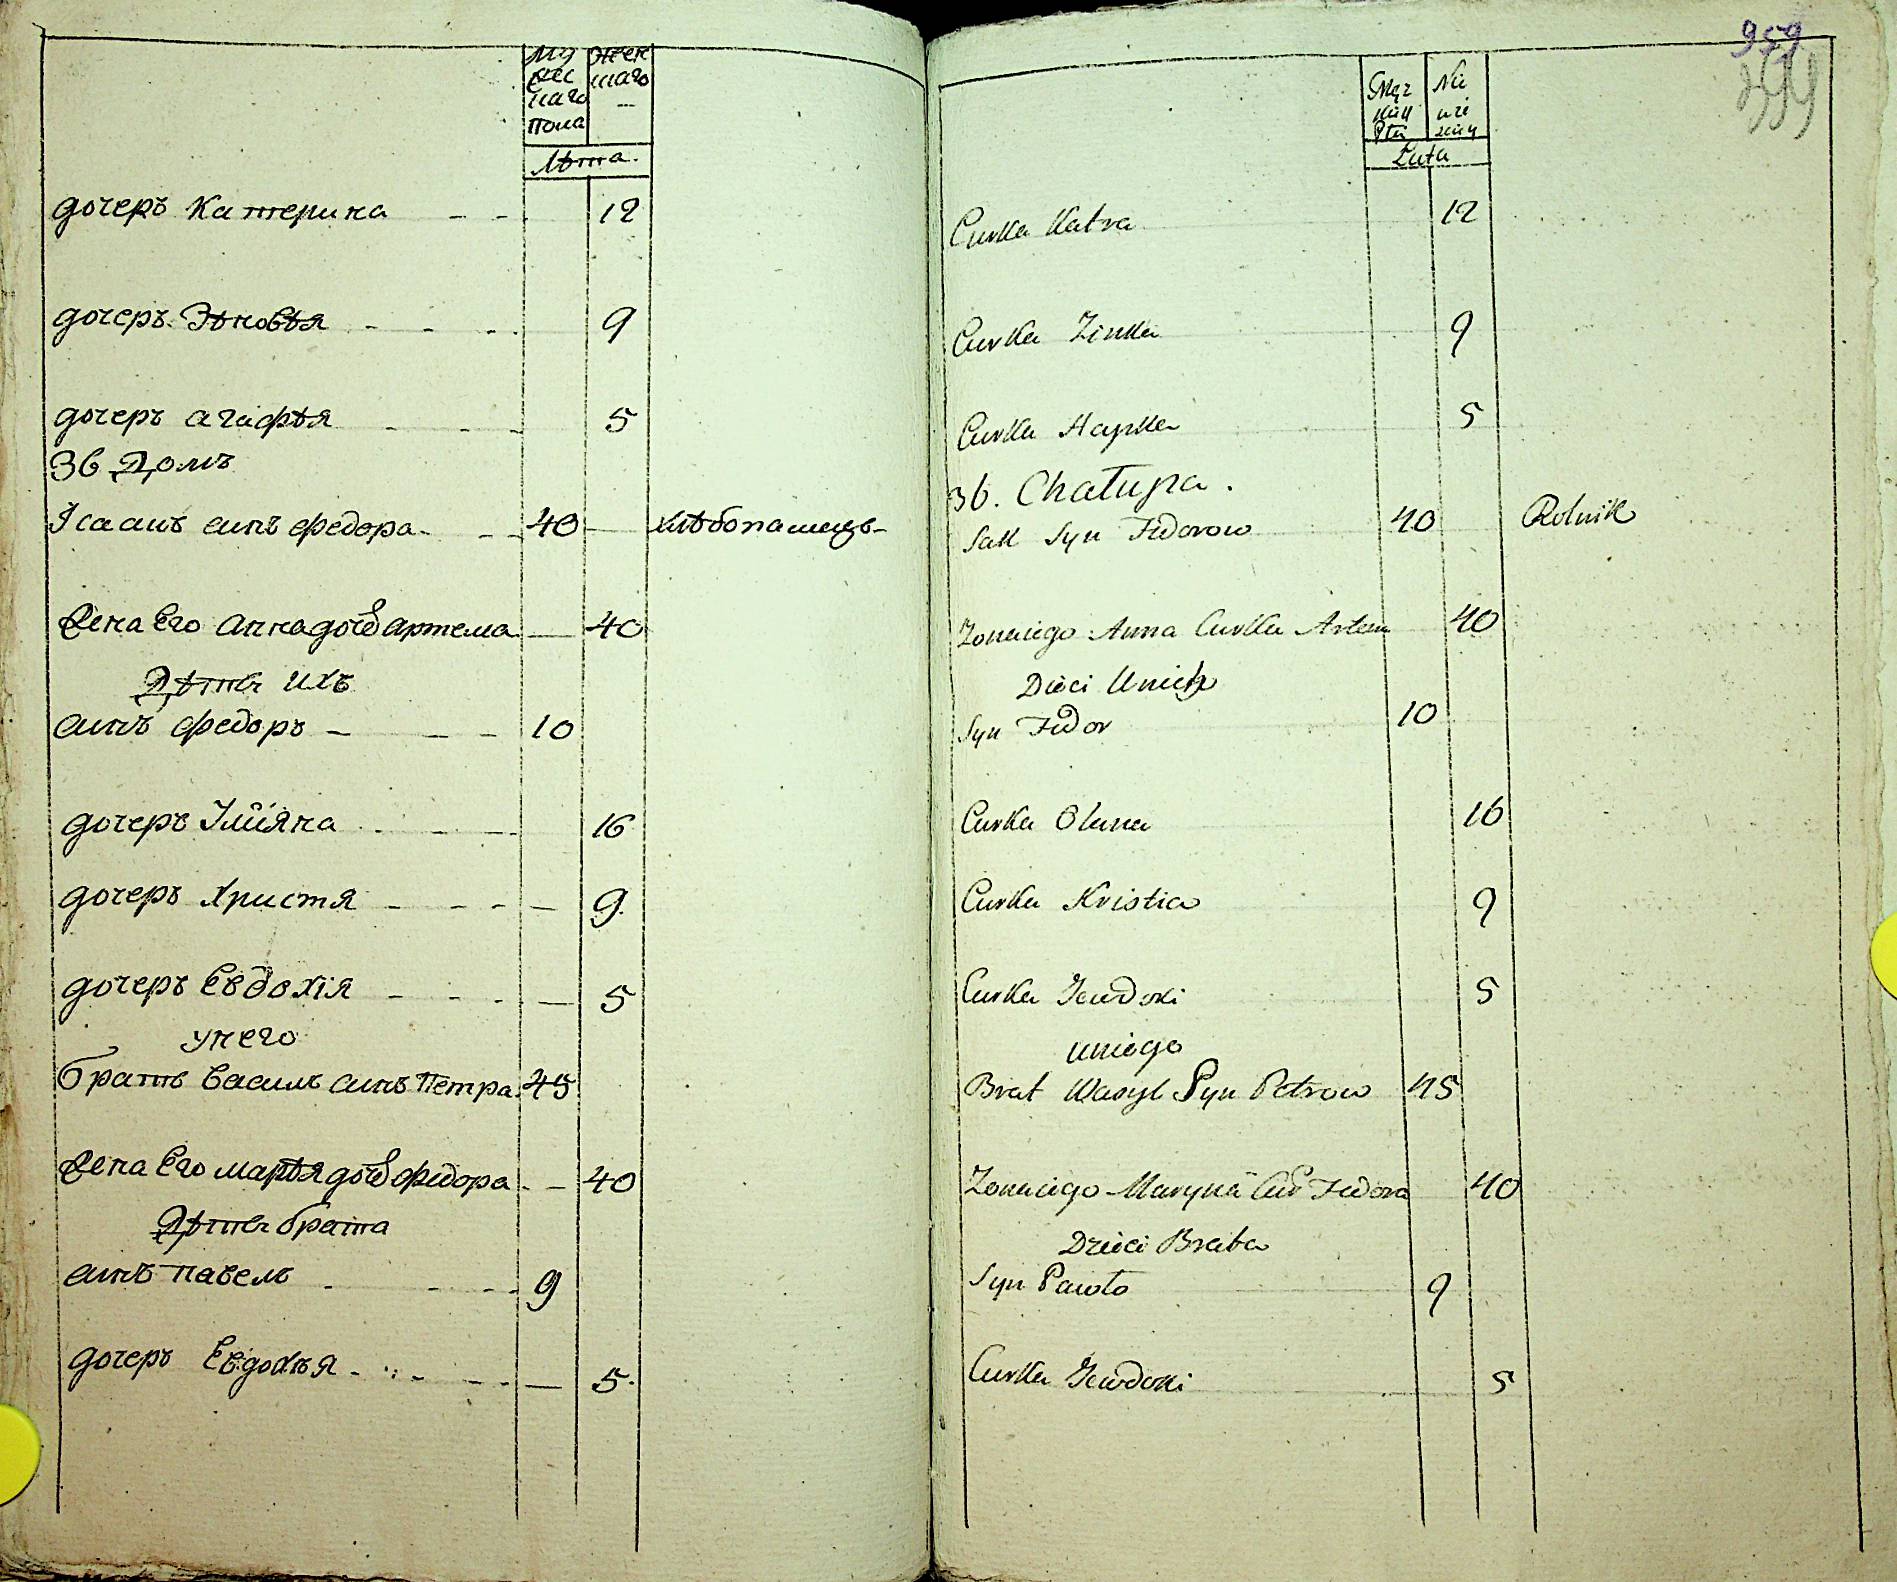 Му
жес
каго
пола
Жен
скаго
Лѣта.
дочеръ Катерина 12
дочеръ Зѣновѣя 9
дочеръ агафѣя 5
36 Домъ
Iсаакъ синъ федора 40 хлѣбопашецъ
Жена Его Анна дочь Артема 40
Дѣти ихъ
синъ федоръ 10
дочеръ Улiяна 16
дочеръ Христя 9
дочеръ Евдохiя 5
унего
братъ василь синъ Петра 45
Жена Его маръя дочь федора 40
Дѣти брата
синъ павелъ 9
дочеръ Евдохъя 5
959
Męz
kiii
Płci
Nie
wie
Lata
Curka Katra 12
Curka Zinka 9
Curka Hapka 5
36. Chałupa.
Sak Syn Fedorow 40 Rolnik
Zonaiego Anna Curka Artem 40
Dieci Unich
Syn Fedor 10
Curka Olana 16
Curka Kristia 9
Curka Jewdoki 5
uniego
Brat Wasyl Syn Petrow 45
Zonaiego Maryna Cur Fedora 40
Dzieci Brata
Syn Pawło 9
Curka Jewdoki 5